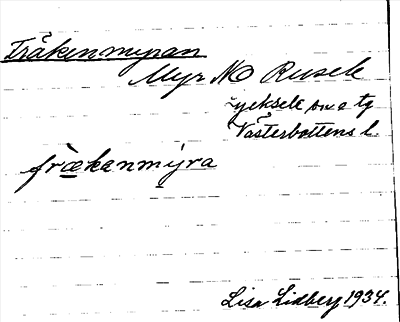 Fräkenmyran
Myr NO Rusele
Lycksele sn o tg
Västerbottens l.
fræ̀kanmýra
Lisa Lidberg 1934.